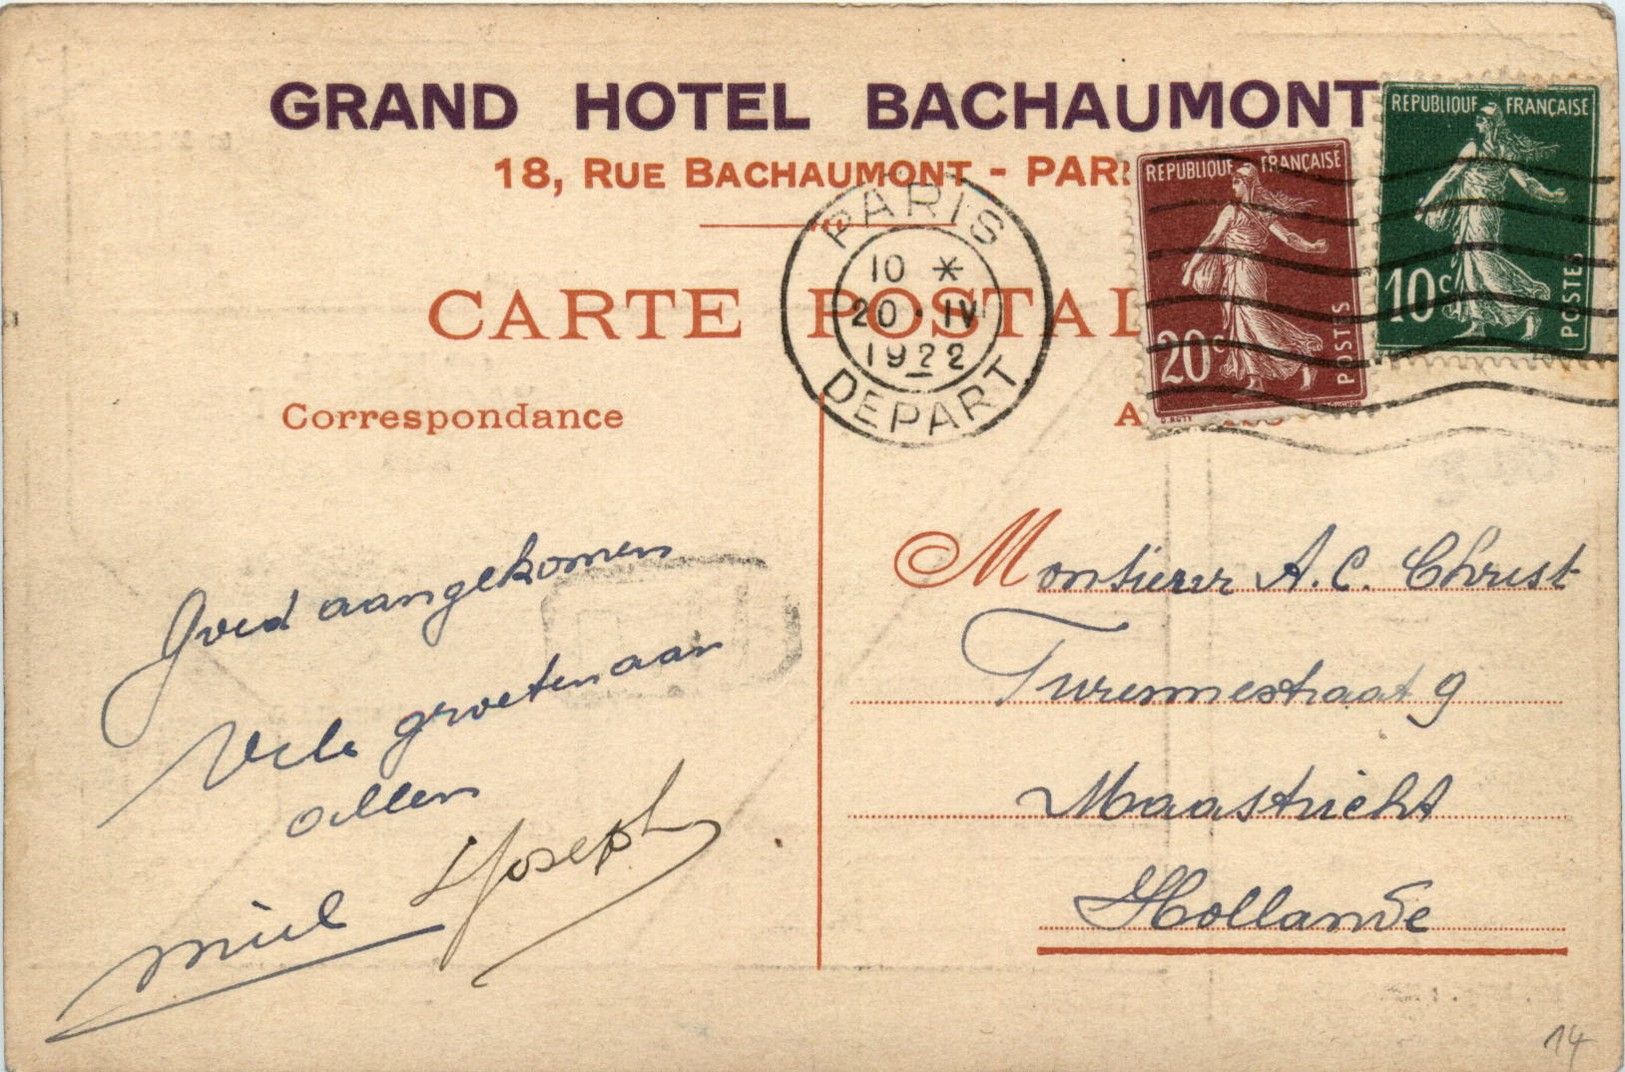 GRAND HOTEL BACHAUMONT
18, RUE BACHAUMONT - PARI
CARTE POSTAL
Correspondance
PARIS
10 *
20 · IV
1922
DEPART
REPUBLIQUE FRANÇAISE
20c
POSTES
REPUBLIQUE FRANÇAISE
10c
POSTES
Goed aangekomen
Vele groeten aan
allen
Miel Joseph
Monsieur A. C. Christ
Turennestraat 9
Maastricht
Hollande
14